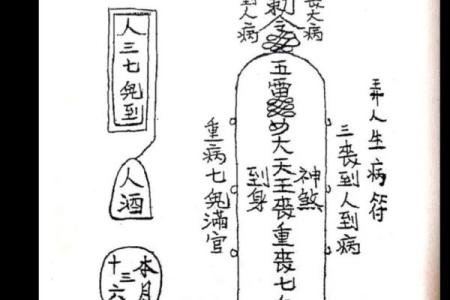 弄人生病符
三喪到人到病
喪大病
勅令
到人病
五雷
大天王喪重喪七
神煞
到身
重病七兇滿官
人三七兇到
人酒
本月
十三六